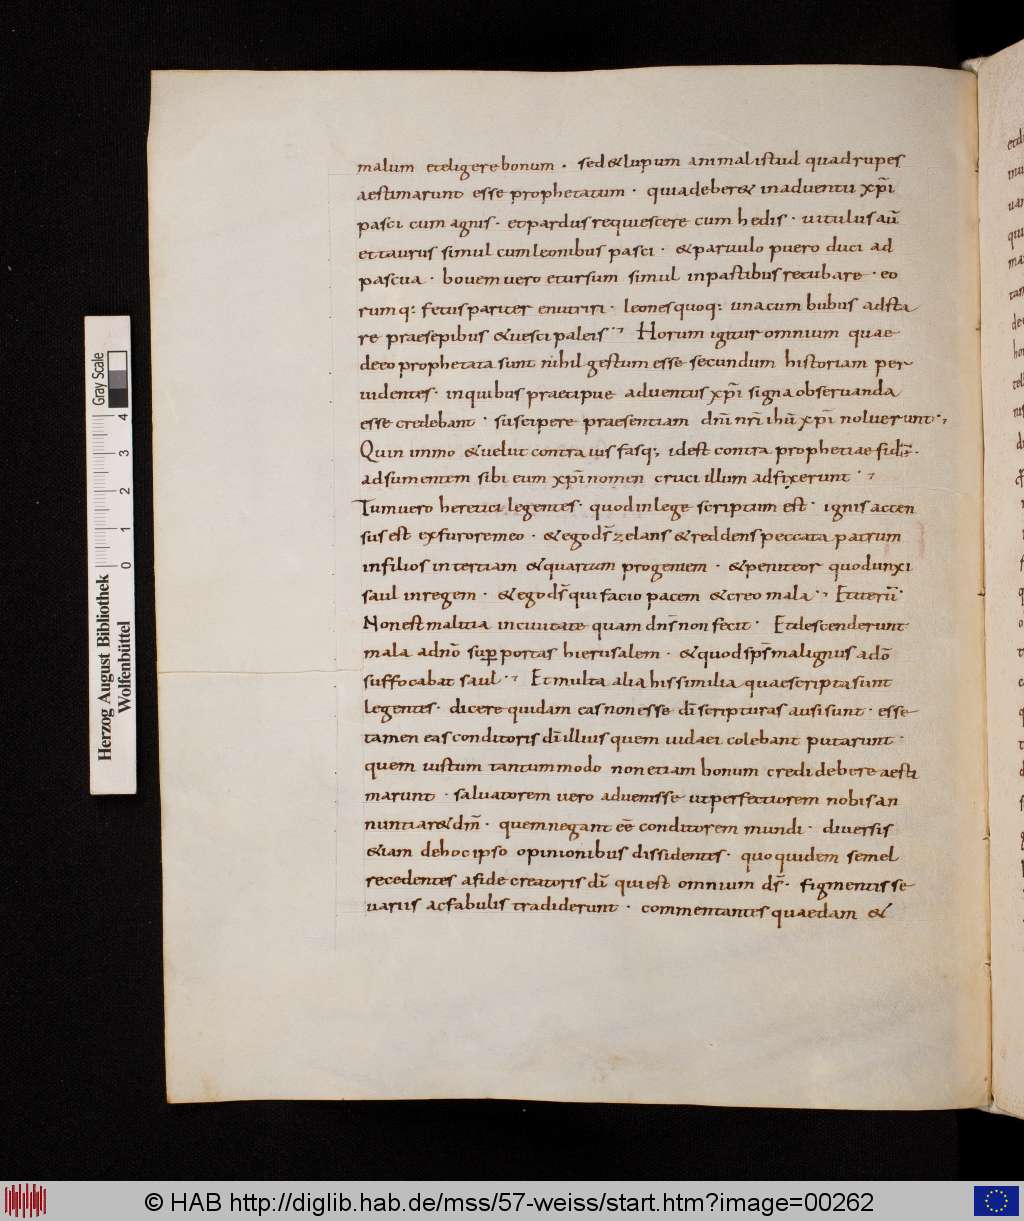 malum et eligere bonum · sed & lupum animal istud quadrupes
aestimarunt esse prophetatum · quia deber& in adventu xp̄i
pasci cum agnis · et pardus requiescere cum hedis · uitulus aū
et taurus simul cum leonibus pasci · & paruulo puero duci ad
pascua · bouem uero et ursum simul in pastibus recubare · eo
rumq: fetus pariter enutriri · leones quoq: una cum bubus adsta
re praesepibus & uesci paleis ·, Horum igitur omnium quae
de eo prophetata sunt nihil gestum esse secundum historiam per
uidentes · in quibus praecipue aduentus xp̄i signa obseruanda
esse credebant · suscipere praesentiam dn̄i nr̄i ih̄u xp̄i noluerunt ·,
Quin immo & uelut contra ius fasq; id est contra prophetiae fidē ·
adsumentem sibi eum xp̄i nomen cruci illum adfixerunt ·,
Tum uero heretici legentes · quod in lege scriptum est · ignis accen
sus est ex furore meo · & ego ds̄ zelans & reddens peccata patrum
in filios in tertiam & quartam progeniem · & peniteor quod unxi
saul in regem · & ego ds̄ qui facio pacem & creo mala ·, Et iterū ·
Non est malitia in ciuitate quam dn̄s non fecit · Et descenderunt
mala a dn̄o sup̲ portas hierusalem · & quod sp̄s malignus a dō
suffocabat saul ·, Et multa alia his similia quae scripta sunt
legentes · dicere quidam eas non esse dī scripturas ausi sunt · esse
tamen eas conditoris dī illius quem iudaei colebant putarunt ·
quem iustum tantummodo non etiam bonum credi debere aesti
marunt · saluatorem uero aduenisse ut perfectiorem nobis an
nuntiar& dm̄ · quem negant eē conditorem mundi · diuersis
&iam de hoc ipso opinionibus dissidentes · quo quidem semel
recedentes a fide creatoris dī qui est omnium ds̄ · figmentis se
uariis ac fabulis tradiderunt · commentantes quaedam &
Herzog August Bibliothek
Wolfenbüttel
Gray Scale
0 1 2 3 4
© HAB http://diglib.hab.de/mss/57-weiss/start.htm?image=00262